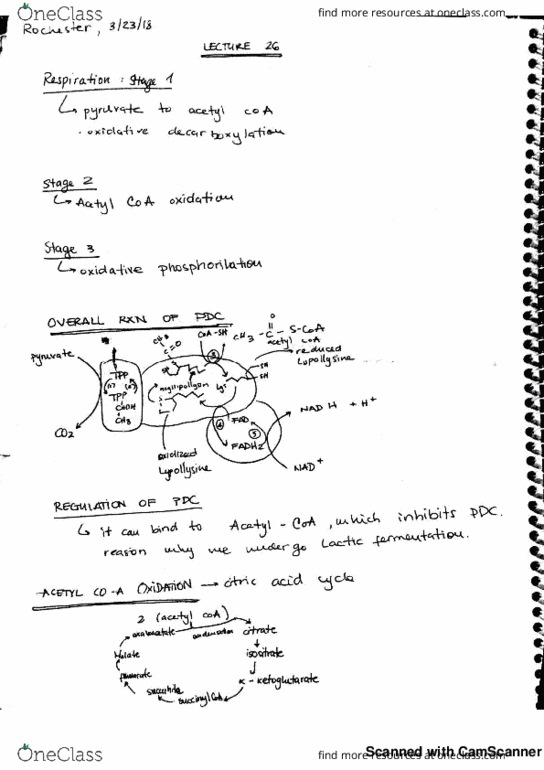 OneClass
find more resources at oneclass.com
Rochester, 3/23/18
LECTURE 26
Respiration : Stage 1
↳ pyruvate to acetyl coA
· oxidative decarboxylation
Stage 2
↳ Acetyl CoA oxidation
Stage 3
↳ oxidative phosphorilation
OVERALL RXN OF PDC
pyruvate
CO2
TPP
TPP
CHOH
CH3
CH3
C=O
CoA-SH
O
CH3 - C - S-CoA
acetyl coA
reduced
Lipollysine
SH
SH
Lys
oxidized
Lypollysine
FAD
FADH2
NADH + H+
NAD+
REGULATION OF PDC
↳ it can bind to Acetyl-CoA, which inhibits PDC.
reason why we undergo Lactic fermentation.
ACETYL CO-A OXIDATION → citric acid cycle
2 (acetyl coA)
oxaloacetate
condensation
citrate
isositrate
α - ketoglutarate
succinyl CoA
Malate
OneClass
find more resources at oneclass.com
Scanned with CamScanner